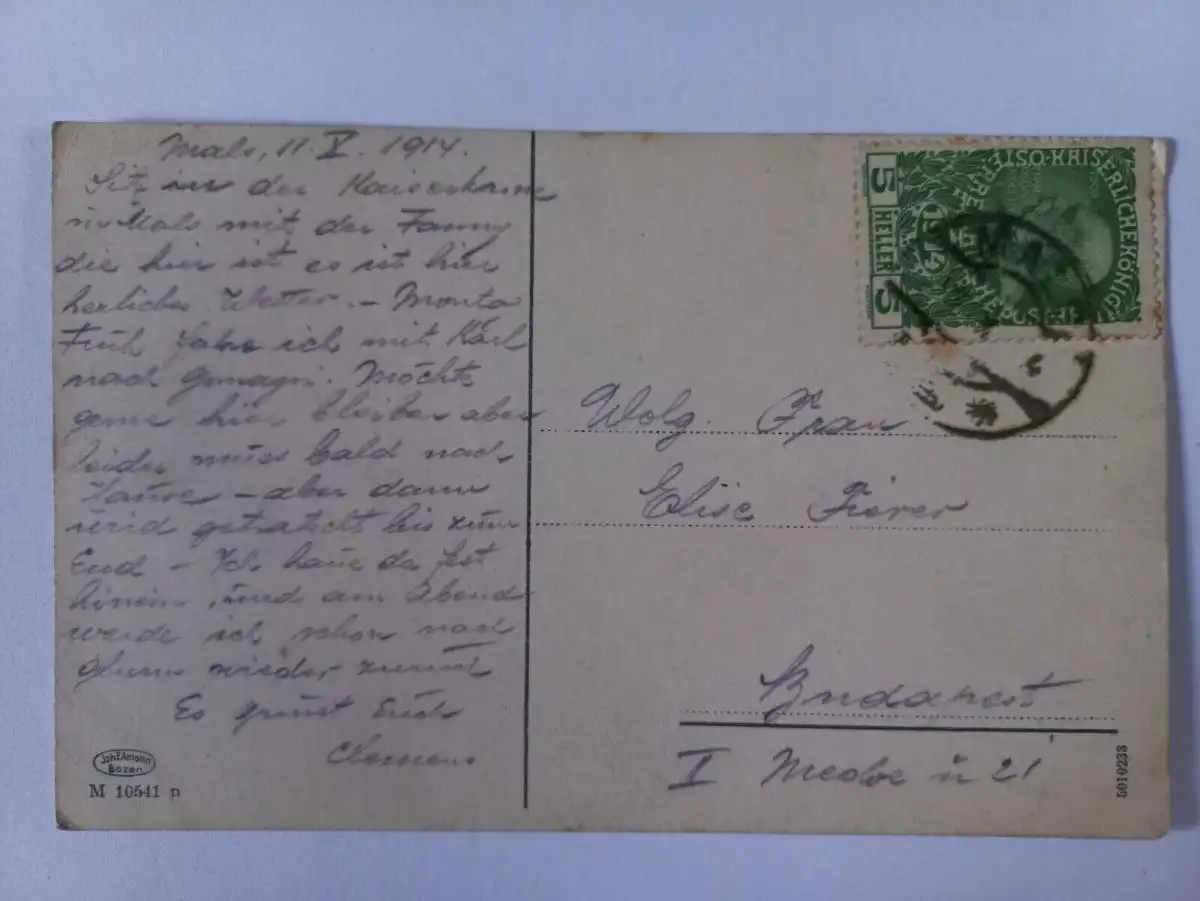 Mals, 11. V. 1914.
Sitz in der Kaiserkrone
in Mals mit der Fanny
die hier ist es ist hier
herliches Wetter. – Montag
Früh fahre ich mit Karl
nach Gomagoi. Möchte
gerne hier bleiben aber
leider muss bald nach
Hause – aber dann
wird getratscht bis zum
End – Ich haue da fest
hinein, und am Abend
werde ich schon nach
Glurns wieder zurück
Es grüsst Euch
Clemens
Joh. F. Amonn
Bozen
M 10541 n
KAISERLICHE KÖNIGL
ÖSTERREICHISCHE POST
5 HELLER 5
1914
MAL
Wolg. Frau
Elise Fierer
Budapest
I u 21
5010233